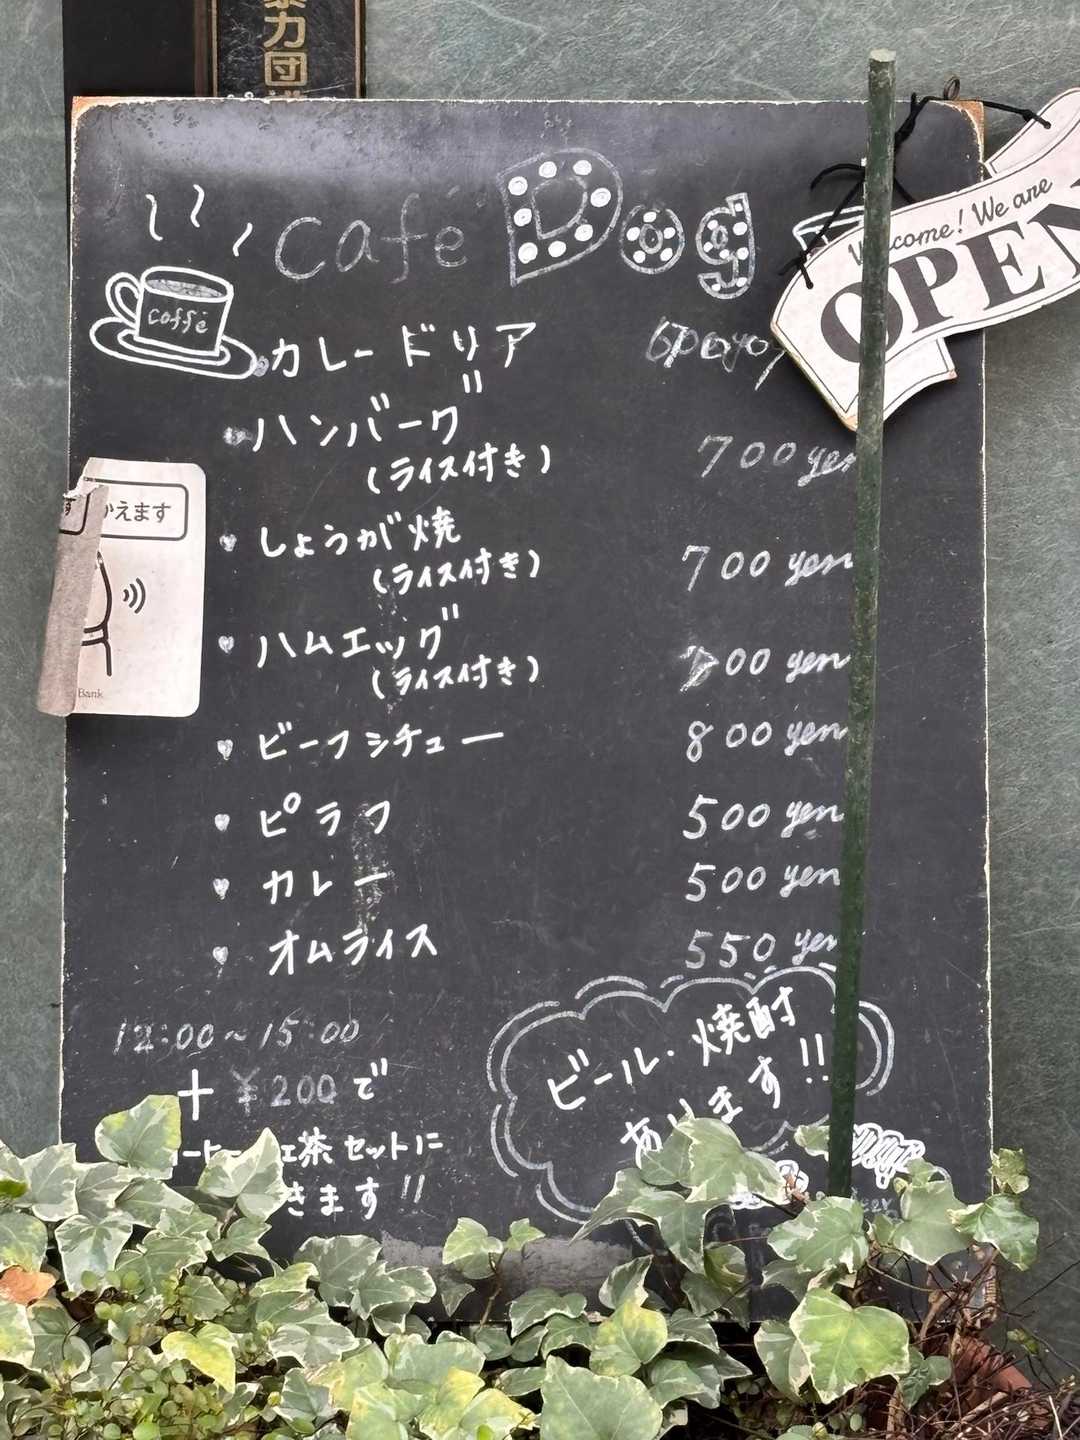 力団
Café Dog
Welcome! We are
OPEN
coffe
カレードリア
ハンバーグ
(ライス付き) 700 yen
かえます
しょうが焼
(ライス付き) 700 yen
ハムエッグ
(ライス付き) 700 yen
Bank
ビーフシチュー 800 yen
ピラフ 500 yen
カレー 500 yen
オムライス 550 yen
12:00~15:00
+¥200で
茶セットに
きます!!
ビール・焼酎
あります!!